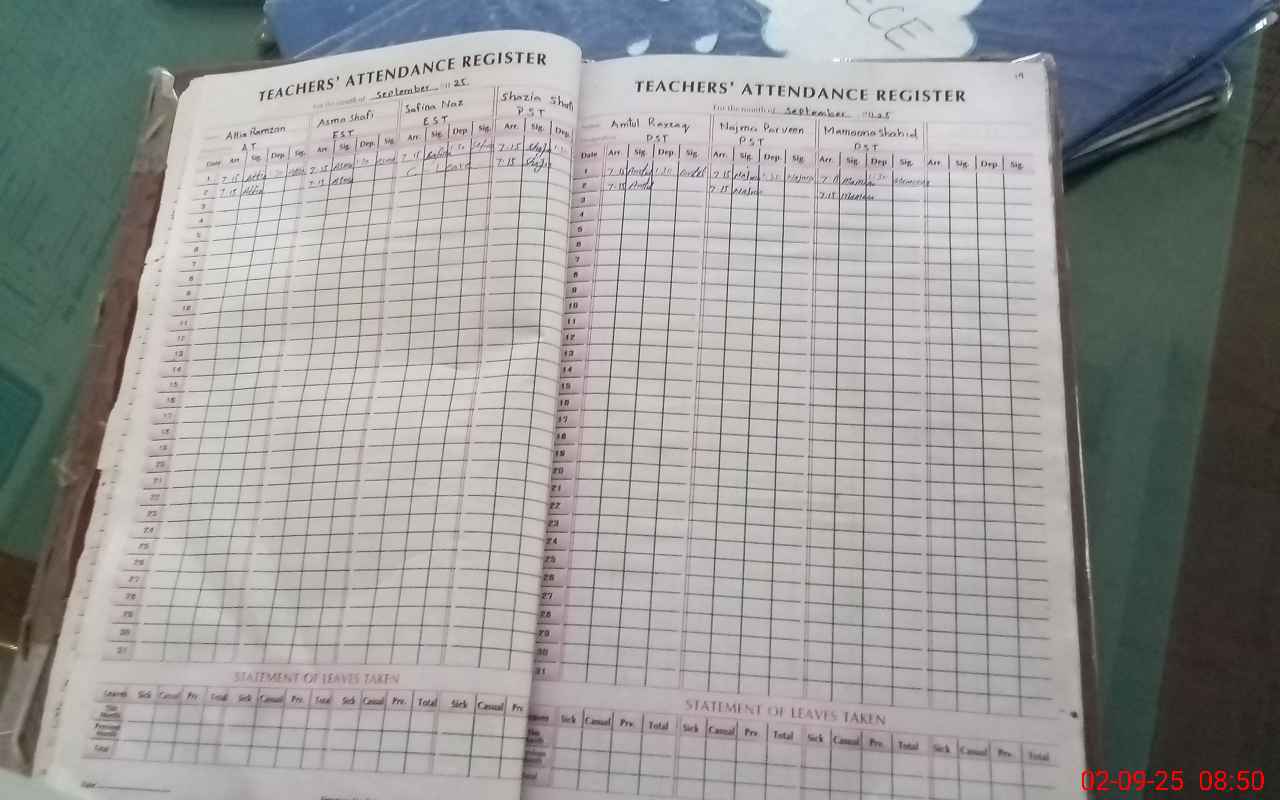 ECE
TEACHERS' ATTENDANCE REGISTER
For the month of September 25
Attia Ramzan Asma Shafi Safina Naz Shazia Shafi
AT EST EST PST
Date Arr. Sig. Dep. Sig. Arr. Sig. Dep. Sig. Arr. Sig. Dep. Sig. Arr. Sig. Dep.
1 7.15 Attia 7.15 Asma 1:30 Asma 7.15 Safina 1:30 Safina 7.15 Shazia 1:30
2 7.15 Attia 7.15 Asma C Leave 7.15 Shazia
3
4
5
6
7
8
9
10
11
12
13
14
15
16
17
18
19
20
21
22
23
24
25
26
27
28
29
30
31
STATEMENT OF LEAVES TAKEN
Leaves Sick Casual Prv. Total Sick Casual Prv. Total Sick Casual Prv. Total Sick Casual Prv
This Month
Previous Month
Total
Date
19
TEACHERS' ATTENDANCE REGISTER
For the month of September 25
Amtul Razzaq Najma Parveen Mamoona Shahid
PST PST PST
Date Arr. Sig. Dep. Sig. Arr. Sig. Dep. Sig. Arr. Sig. Dep. Sig. Arr. Sig. Dep. Sig.
1 7.15 Amtul 1:30 Amtul 7.15 Najma 1:30 Najma 7.15 Mamoona 1:30 Mamoona
2 7.15 Amtul 7.15 Najma 7.15 Mamoona
3
4
5
6
7
8
9
10
11
12
13
14
15
16
17
18
19
20
21
22
23
24
25
26
27
28
29
30
31
STATEMENT OF LEAVES TAKEN
Leaves Sick Casual Prv. Total Sick Casual Prv. Total Sick Casual Prv. Total Sick Casual Prv. Total
This Month
Previous Month
Total
02-09-25 08:50